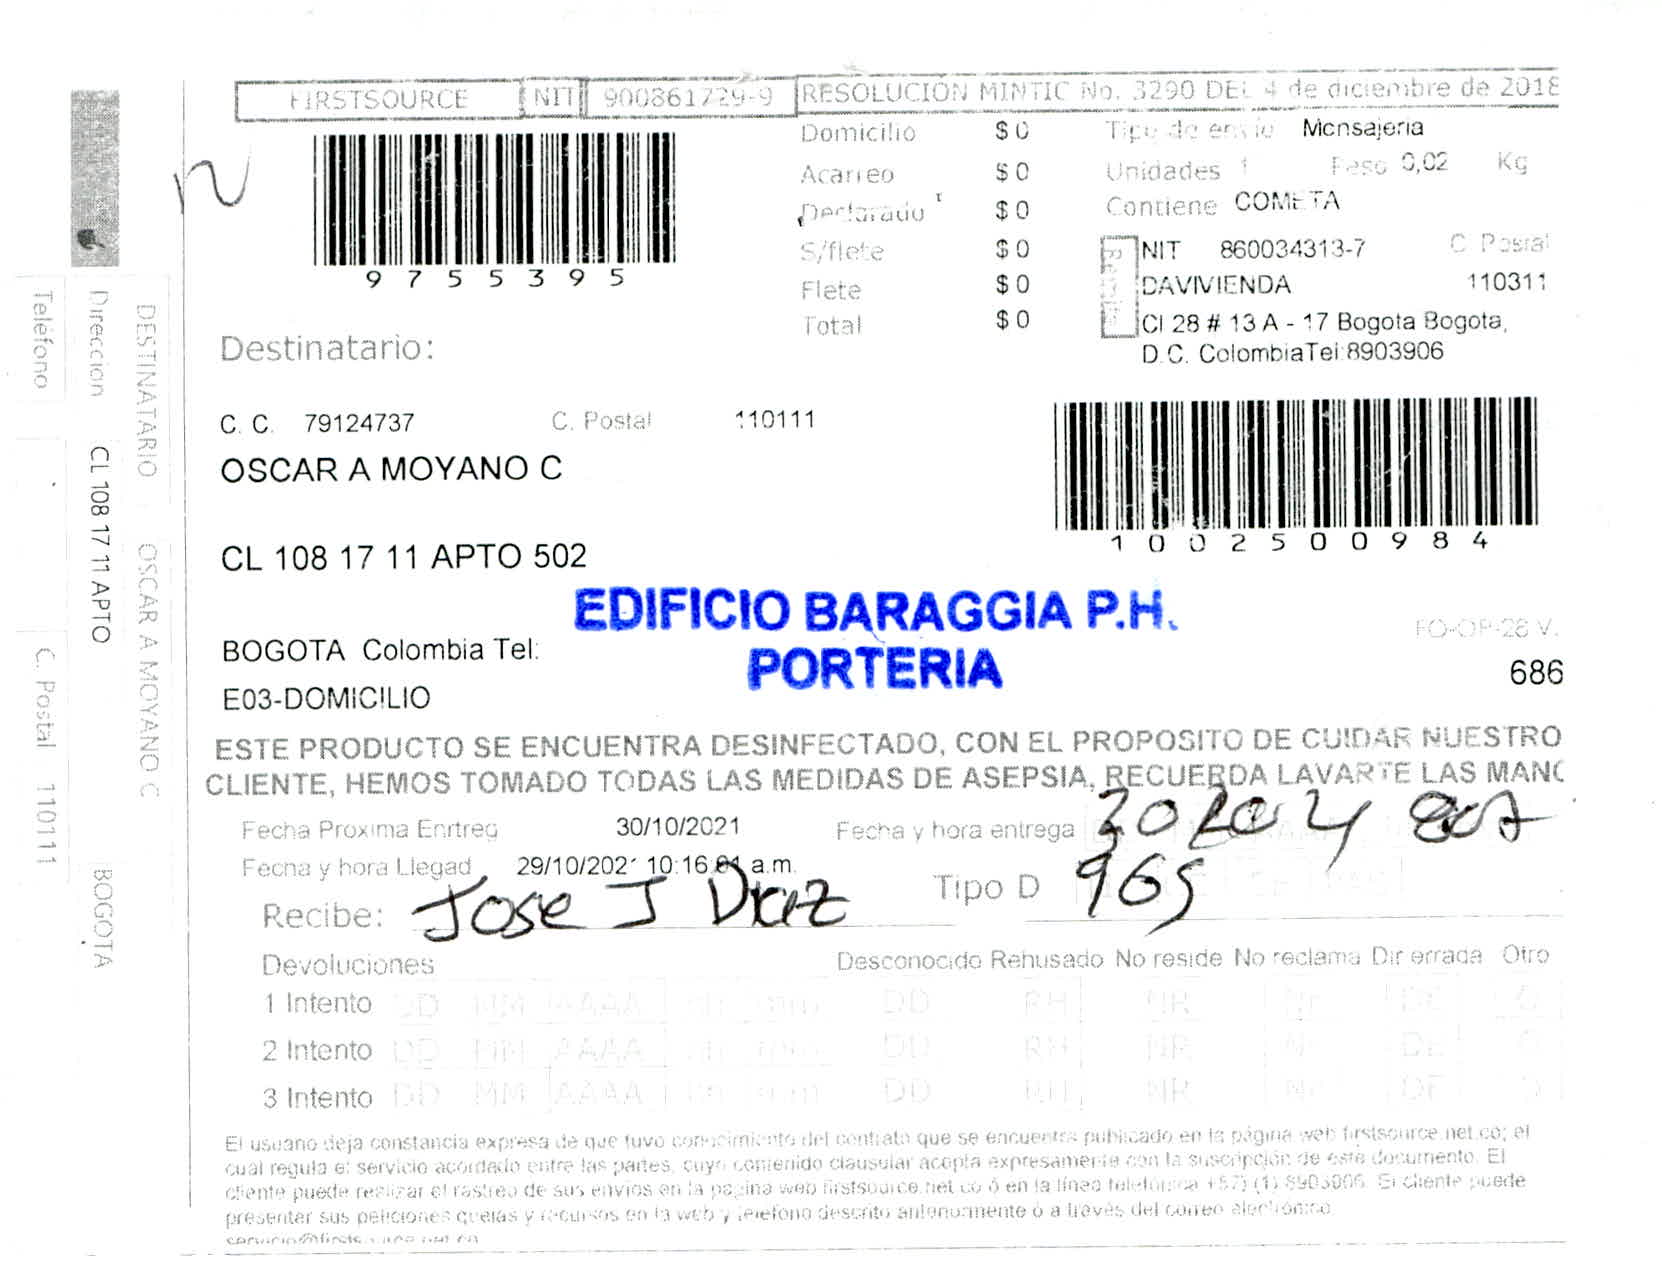 FIRSTSOURCE NIT 900861729-9 RESOLUCION MINTIC No. 3290 DEL 4 de diciembre de 2018
Domicilio $ 0 Tipo de envio Mensajeria
Acarreo $ 0 Unidades 1 Peso 0,02 Kg
Declarado $ 0 Contiene COMETA
S/flete $ 0 NIT 860034313-7 C Postal
Flete $ 0 DAVIVIENDA 110311
Total $ 0 Cl 28 # 13 A - 17 Bogota Bogota,
D.C. Colombia Tel 8903906
9755395
Destinatario:
C. C. 79124737 C. Postal 110111
OSCAR A MOYANO C
1002500984
CL 108 17 11 APTO 502
EDIFICIO BARAGGIA P.H.
PORTERIA
BOGOTA Colombia Tel:
FO-OP-28 V.
686
E03-DOMICILIO
ESTE PRODUCTO SE ENCUENTRA DESINFECTADO, CON EL PROPOSITO DE CUIDAR NUESTRO
CLIENTE, HEMOS TOMADO TODAS LAS MEDIDAS DE ASEPSIA, RECUERDA LAVARTE LAS MANO
Fecha Proxima Enrtreg 30/10/2021 Fecha y hora entrega
Fecha y hora Llegad 29/10/2021 10:16:01 a.m. Tipo D 965
Recibe: Jose J Diaz
Devoluciones Desconocido Rehusado No reside No reclama Dir errada Otro
1 Intento DD MM AAAA hh mm DD RH NR Nr DE O
2 Intento DD MM AAAA hh mm DD RH NR Nr DE O
3 Intento DD MM AAAA hh mm DD RH NR Nr DE O
El usuario deja constancia expresa de que tuvo conocimiento del contrato que se encuentra publicado en la página web firstsource.net.co; el
cual regula el servicio acordado entre las partes, cuyo contenido clausular acepta expresamente con la suscripción de este documento. El
cliente puede realizar el rastreo de sus envios en la pagina web firstsource.net.co ó en la línea telefonica +57) (1) 8903906. El cliente puede
presentar sus peticiones quejas y recursos en la web y telefono descrito anteriormente o a través del correo electrónico
servicio@firstsource.net.co
DESTINATARIO OSCAR A MOYANO C
Direccion CL 108 17 11 APTO BOGOTA
Teléfono C. Postal 110111